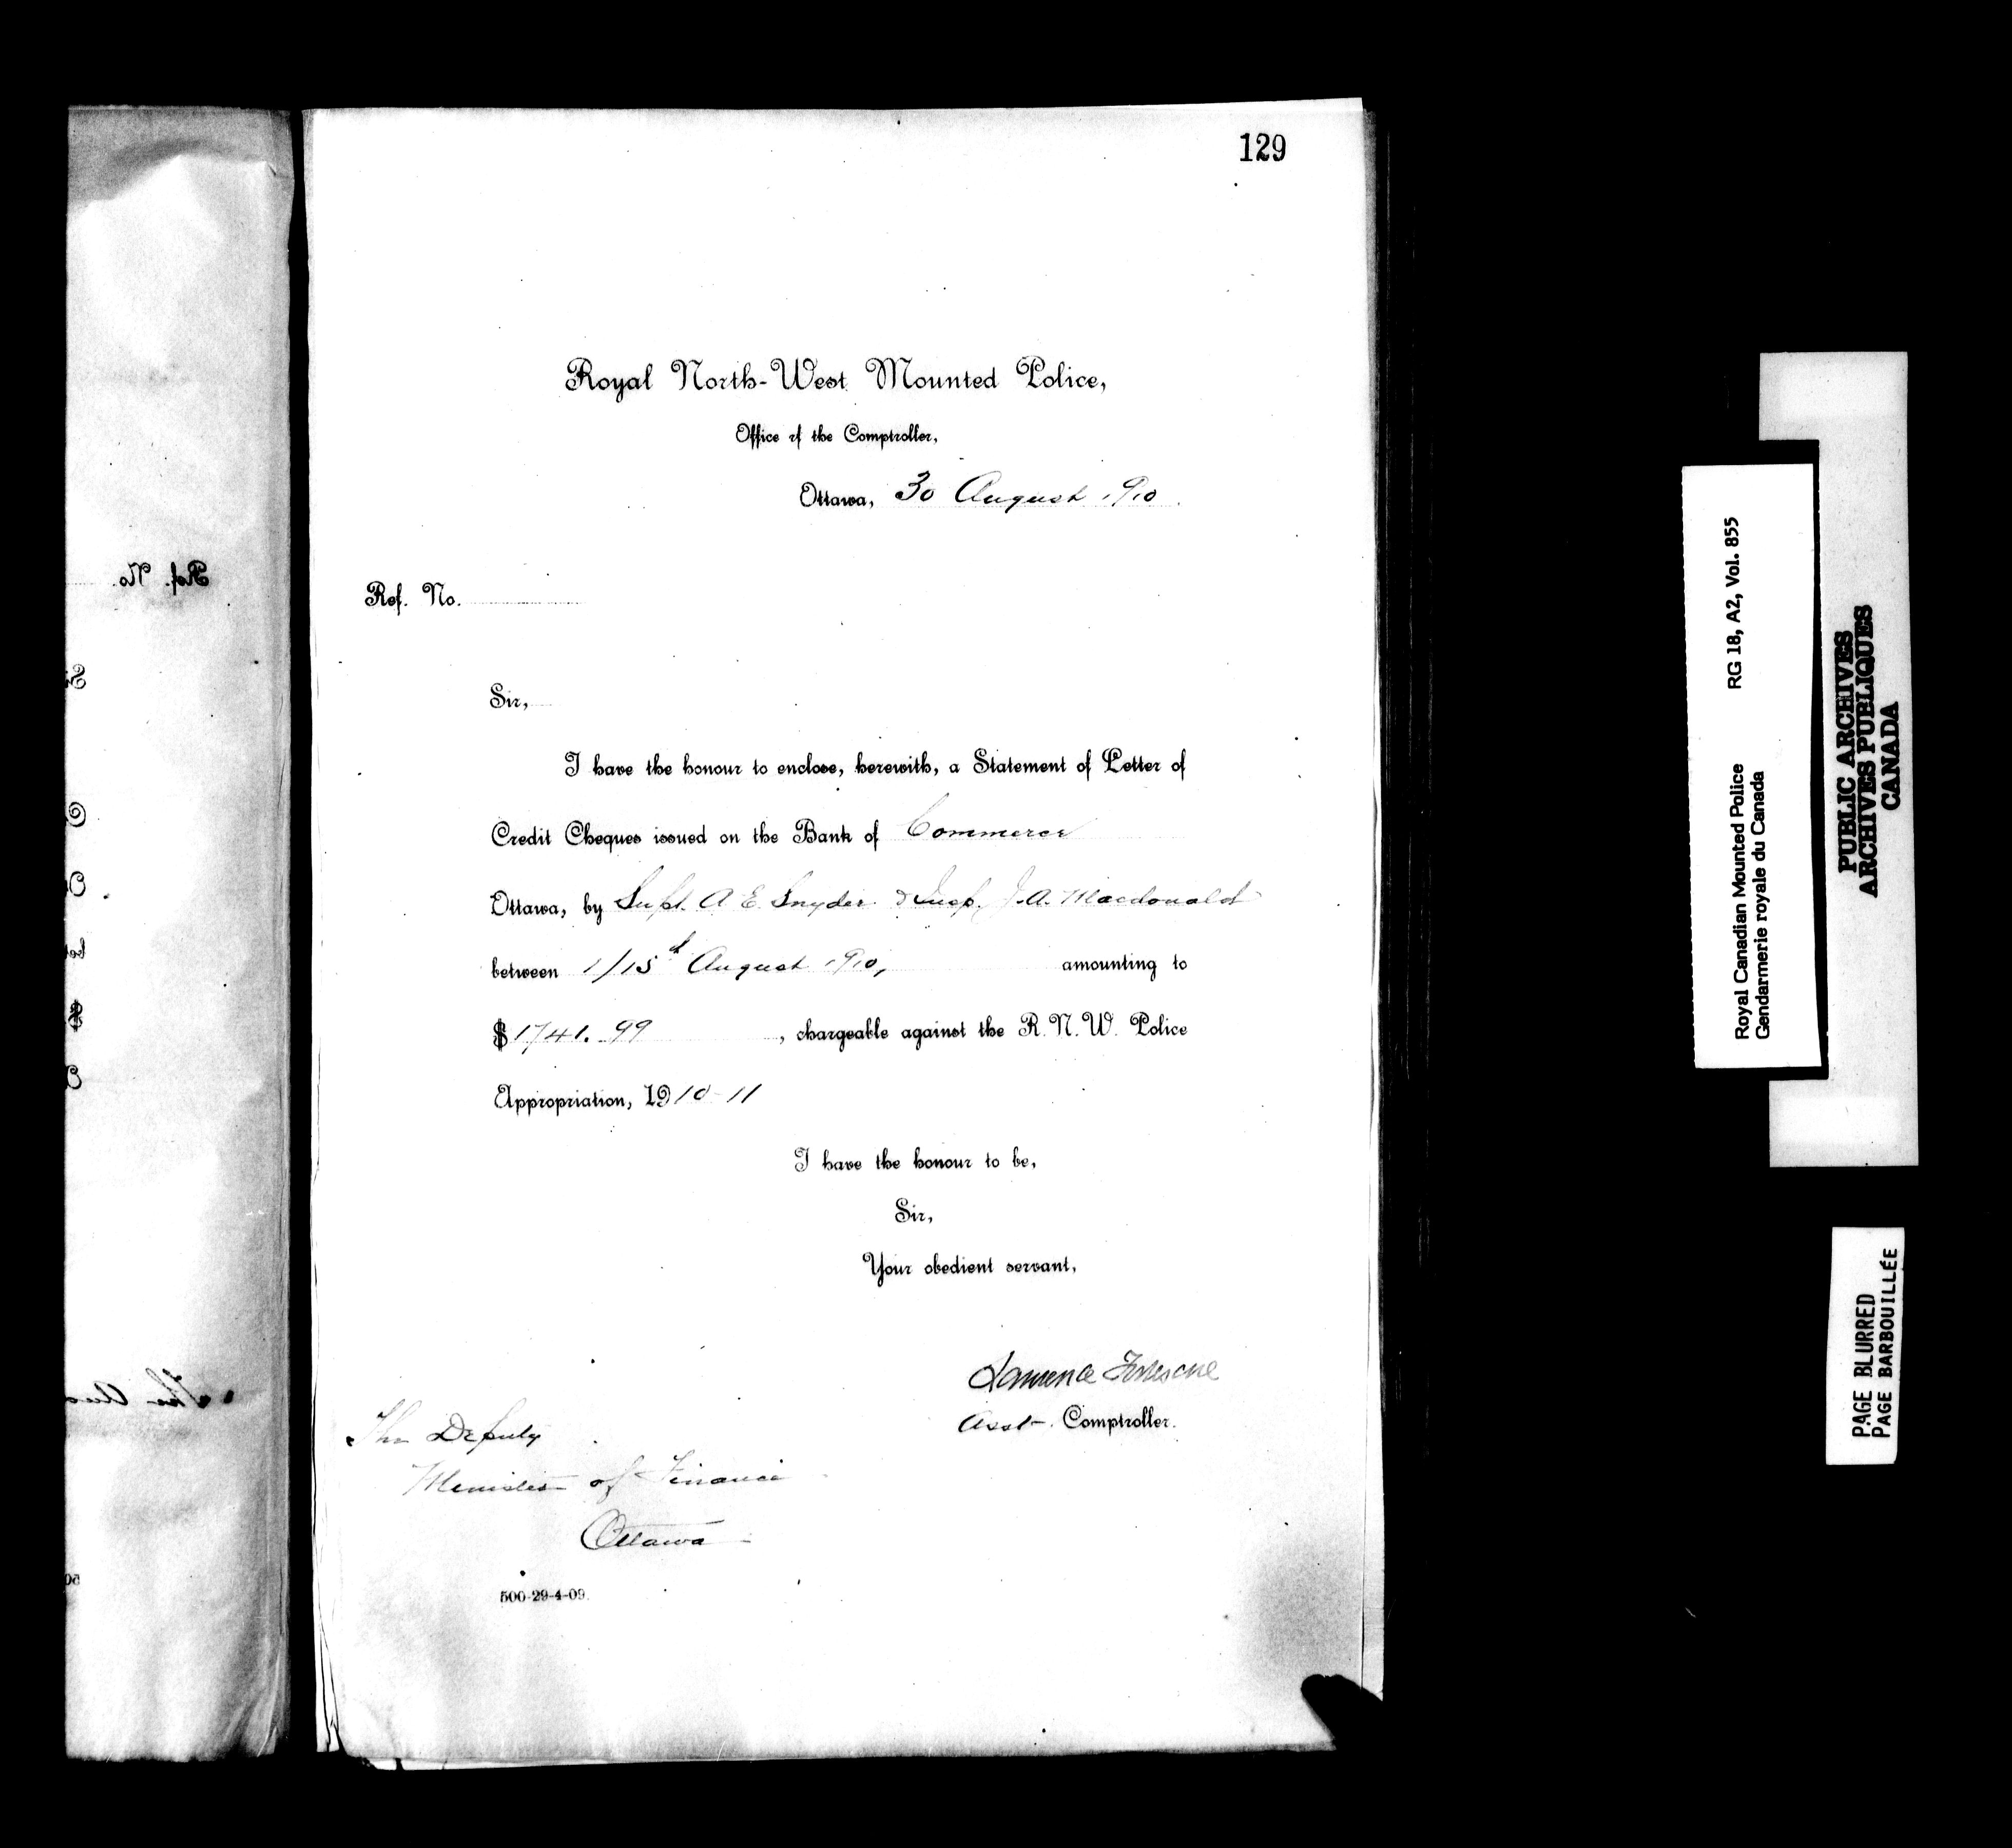 129
Royal North-West Mounted Police,
Office of the Comptroller,
Ottawa, 30 August 1910.
Ref. No.
Sir,
I have the honour to enclose, herewith, a Statement of Letter of
Credit Cheques issued on the Bank of Commerce
Ottawa, by Supt. A. E. Snyder & Insp. J. A. Macdonald
between 1/15th August 1910, amounting to
$1741.99, chargeable against the R. N. W. Police
Appropriation, 1910-11
I have the honour to be,
Sir,
Your obedient servant,
Laurence Fortescue
Asst. Comptroller.
The Deputy
Minister of Finance
Ottawa
500-29-4-09.
Ref. No.
The
Royal Canadian Mounted Police RG 18, A2, Vol. 855
Gendarmerie royale du Canada
PUBLIC ARCHIVES
ARCHIVES PUBLIQUES
CANADA
PAGE BLURRED
PAGE BARBOUILLÉE